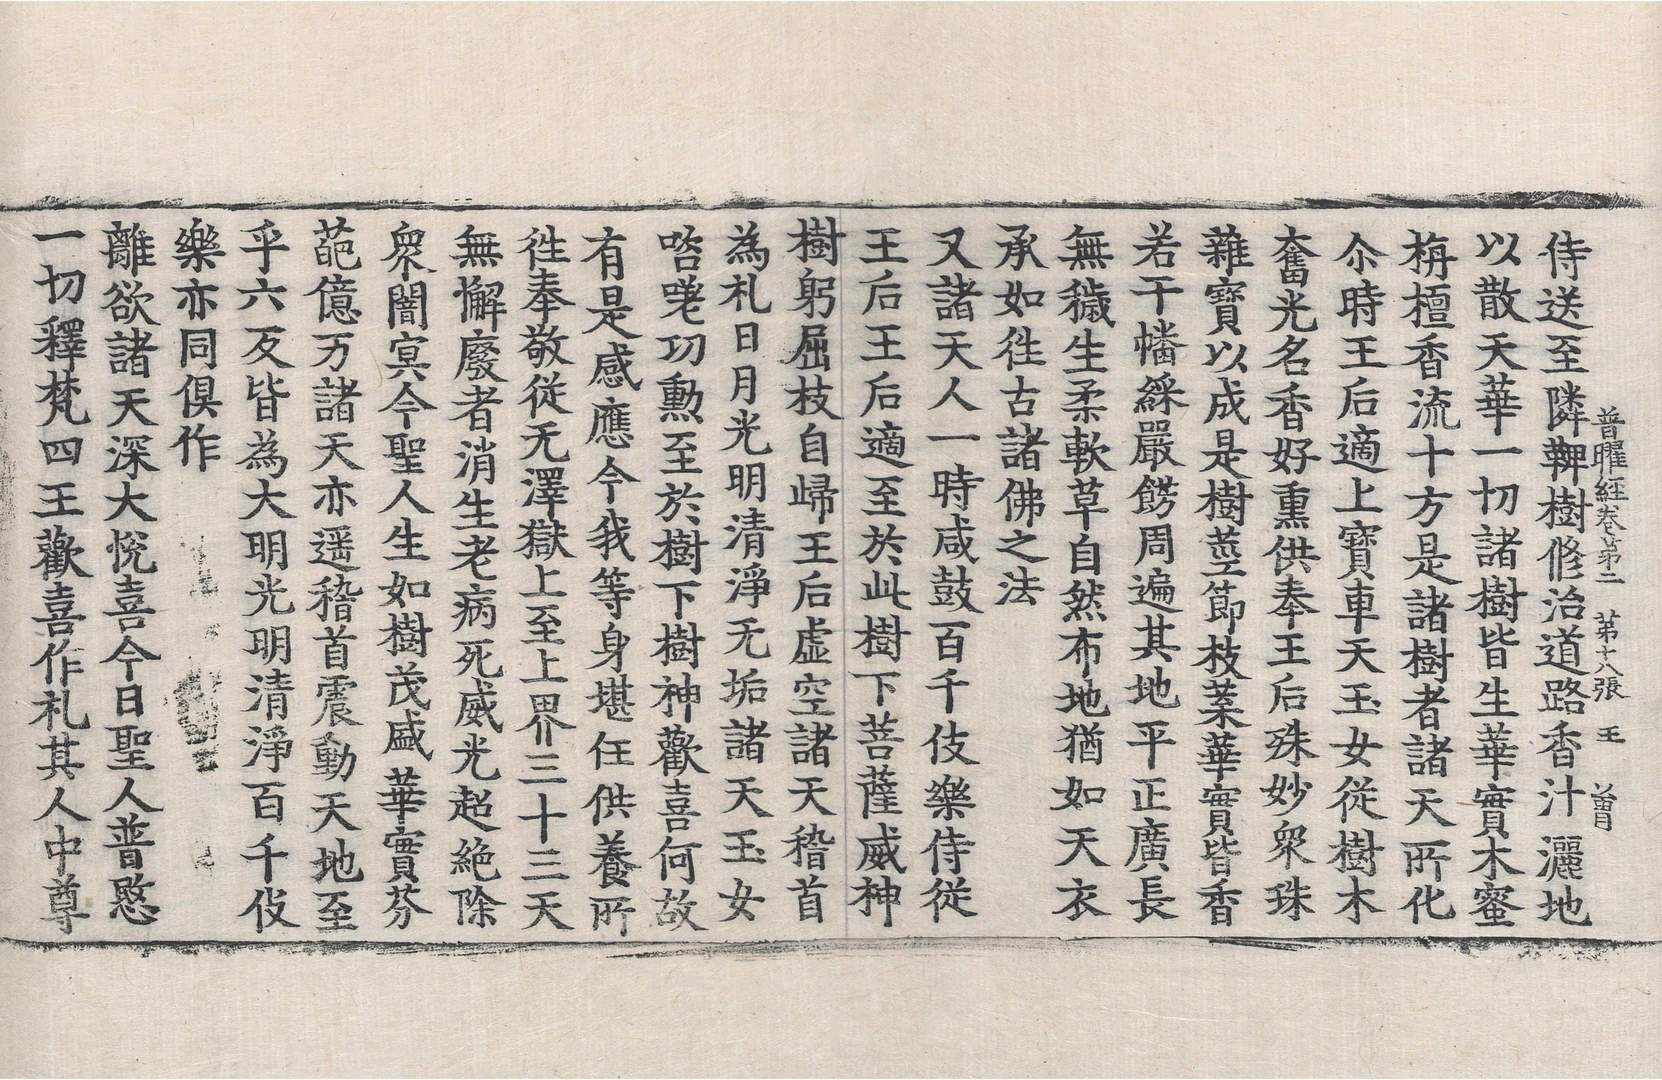 普曜經卷第二　第十八張　王　曾
侍送至隣鞞樹修治道路香汁灑地
以散天華一切諸樹皆生華實木蜜
栴檀香流十方是諸樹者諸天所化
尒時王后適上寶車天玉女從樹木
奮光名香好熏供奉王后殊妙衆珠
雜寶以成是樹莖節枝葉華實皆香
若干幡綵嚴餝周遍其地平正廣長
無穢生柔軟草自然布地猶如天衣
承如徃古諸佛之法
又諸天人一時咸鼓百千伎樂侍從
王后王后適至於此樹下菩薩威神
樹躬屈枝自歸王后虛空諸天稽首
為礼日月光明清淨无垢諸天玉女
咨嗟功勳至於樹下樹神歡喜何故
有是感應今我等身堪任供養所
徃奉敬從无澤獄上至上界三十三天
無懈廢者消生老病死威光超絶除
衆闇冥今聖人生如樹茂盛華實芬
葩億万諸天亦遥稽首震動天地至
乎六反皆為大明光明清淨百千伎
樂亦同俱作
離欲諸天深大悅喜今日聖人普愍
一切釋梵四王歡喜作礼其人中尊